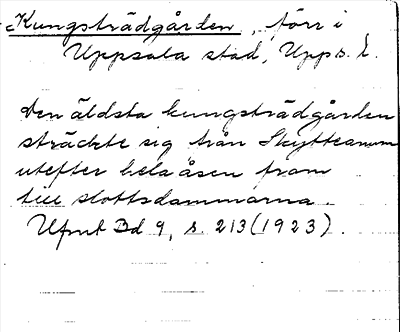 Kungsträdgården, förr i
Uppsala stad, Upps. l.
Den äldsta kungsträdgården
sträckte sig från Skytteanum
utefter hela åsen fram
till slottsdammarna.
Ufmt Bd 9, s. 213 (1923).